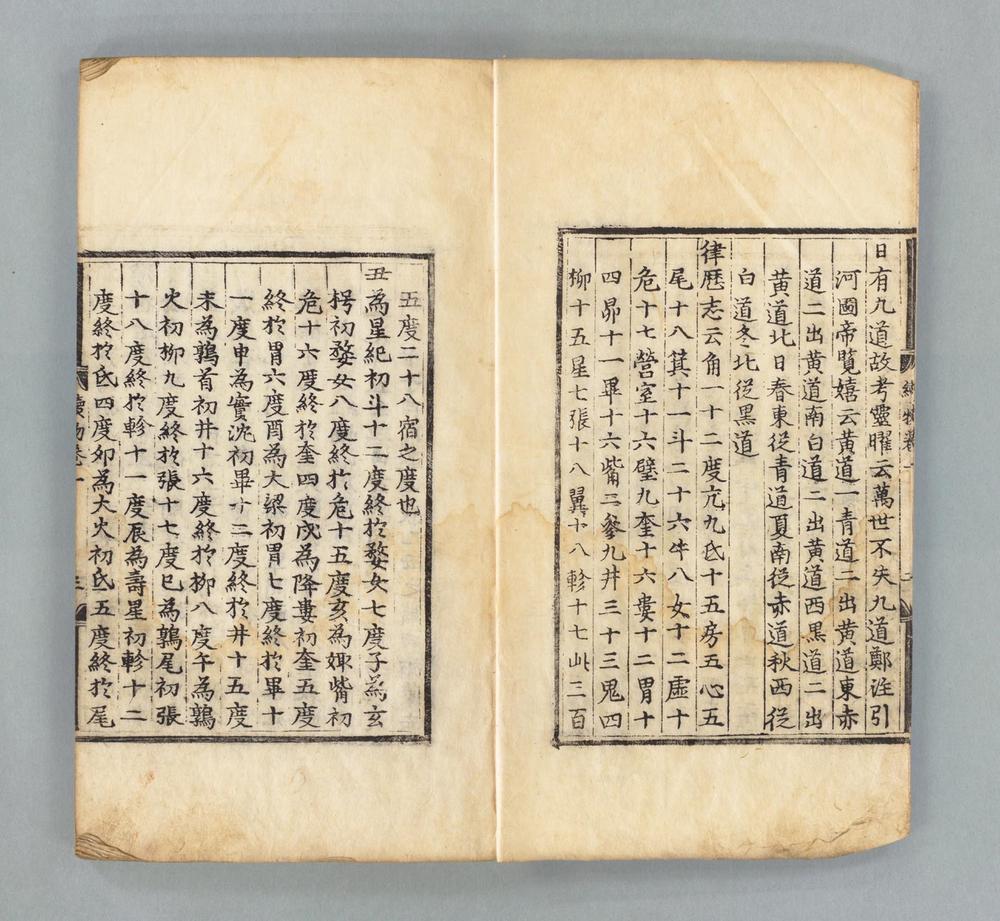 日有九道故考靈曜云萬世不失九道鄭注引
河圖帝覽嬉云黃道一青道二出黃道東赤
道二出黃道南白道二出黃道西黑道二出
黃道北日春東從青道夏南從赤道秋西從
白道冬北從黑道
律歷志云角一十二度亢九氐十五房五心五
尾十八箕十一斗二十六牛八女十二虛十
危十七營室十六壁九奎十六婁十二胃十
四昴十一畢十六觜二參九井三十三鬼四
柳十五星七張十八翼十八軫十七此三百
五度二十八宿之度也
丑為星紀初斗十二度終於婺女七度子為玄
枵初婺女八度終於危十五度亥為娵觜初
危十六度終於奎四度戌為降婁初奎五度
終於胃六度酉為大梁初胃七度終於畢十
一度申為實沈初畢十二度終於井十五度
未為鶉首初井十六度終於柳八度午為鶉
火初柳九度終於張十七度巳為鶉尾初張
十八度終於軫十一度辰為壽星初軫十二
度終於氐四度卯為大火初氐五度終於尾